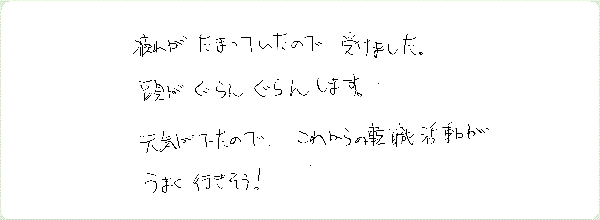 疲れが たまっていたので 受けました。
頭が ぐらんぐらんします。
元気がでたので、これからの転職活動が
うまく行きそう!